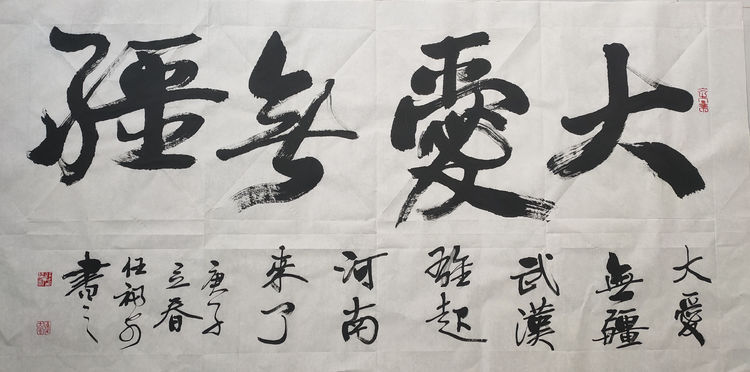 大愛無疆
大愛
無疆
武漢
雄起
河南
来了
庚子
立春
任
書之